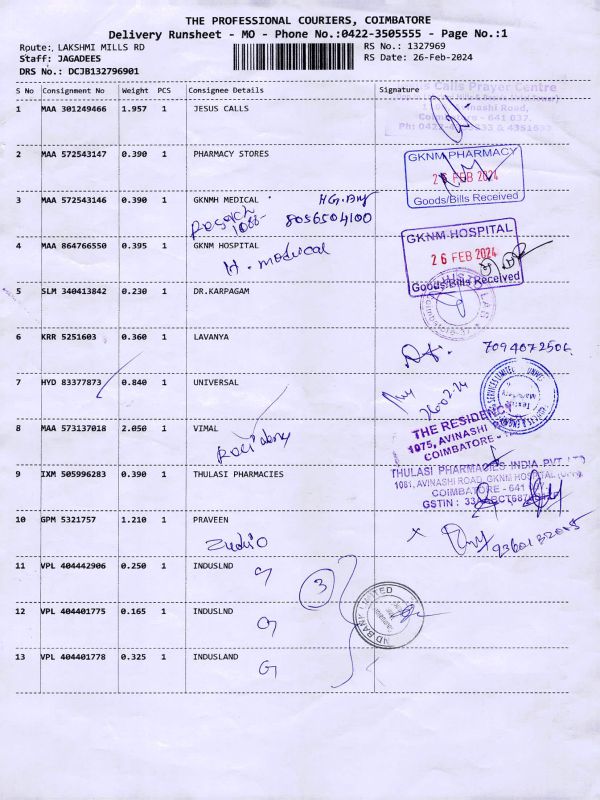 THE PROFESSIONAL COURIERS, COIMBATORE
Delivery Runsheet - MO - Phone No.:0422-3505555 - Page No.:1
Route: LAKSHMI MILLS RD
RS No.: 1327969
Staff: JAGADEES
RS Date: 26-Feb-2024
DRS No.: DCJB132796901
S No Consignment No Weight PCS Consignee Details Signature
Calls Prayer Centre
1 MAA 301249466 1.957 1 JESUS CALLS
Road,
641 037.
2 MAA 572543147 0.390 1 PHARMACY STORES
GKNM PHARMACY
26 FEB 2024
Goods/Bills Received
3 MAA 572543146 0.390 1 GKNMH MEDICAL
8056504100
4 MAA 864766550 0.395 1 GKNM HOSPITAL
H. medical
GKNM HOSPITAL
26 FEB 2024
Goods/Bills Received
5 SLM 340413842 0.230 1 DR.KARPAGAM
6 KRR 5251603 0.360 1 LAVANYA
7094072506
7 HYD 83377873 0.840 1 UNIVERSAL
8 MAA 573137018 2.050 1 VIMAL
THE RESIDENCY
1075, AVINASHI
COIMBATORE
9 IXM 505996283 0.390 1 THULASI PHARMACIES
THULASI PHARMACIES INDIA PVT LTD
1081, AVINASHI ROAD, GKNM HOSPITAL
COIMBATORE - 641
GSTIN :
10 GPM 5321757 1.210 1 PRAVEEN
Zudio
11 VPL 404442906 0.250 1 INDUSLND
3
12 VPL 404401775 0.165 1 INDUSLND
BANK LIMITED
13 VPL 404401778 0.325 1 INDUSLAND